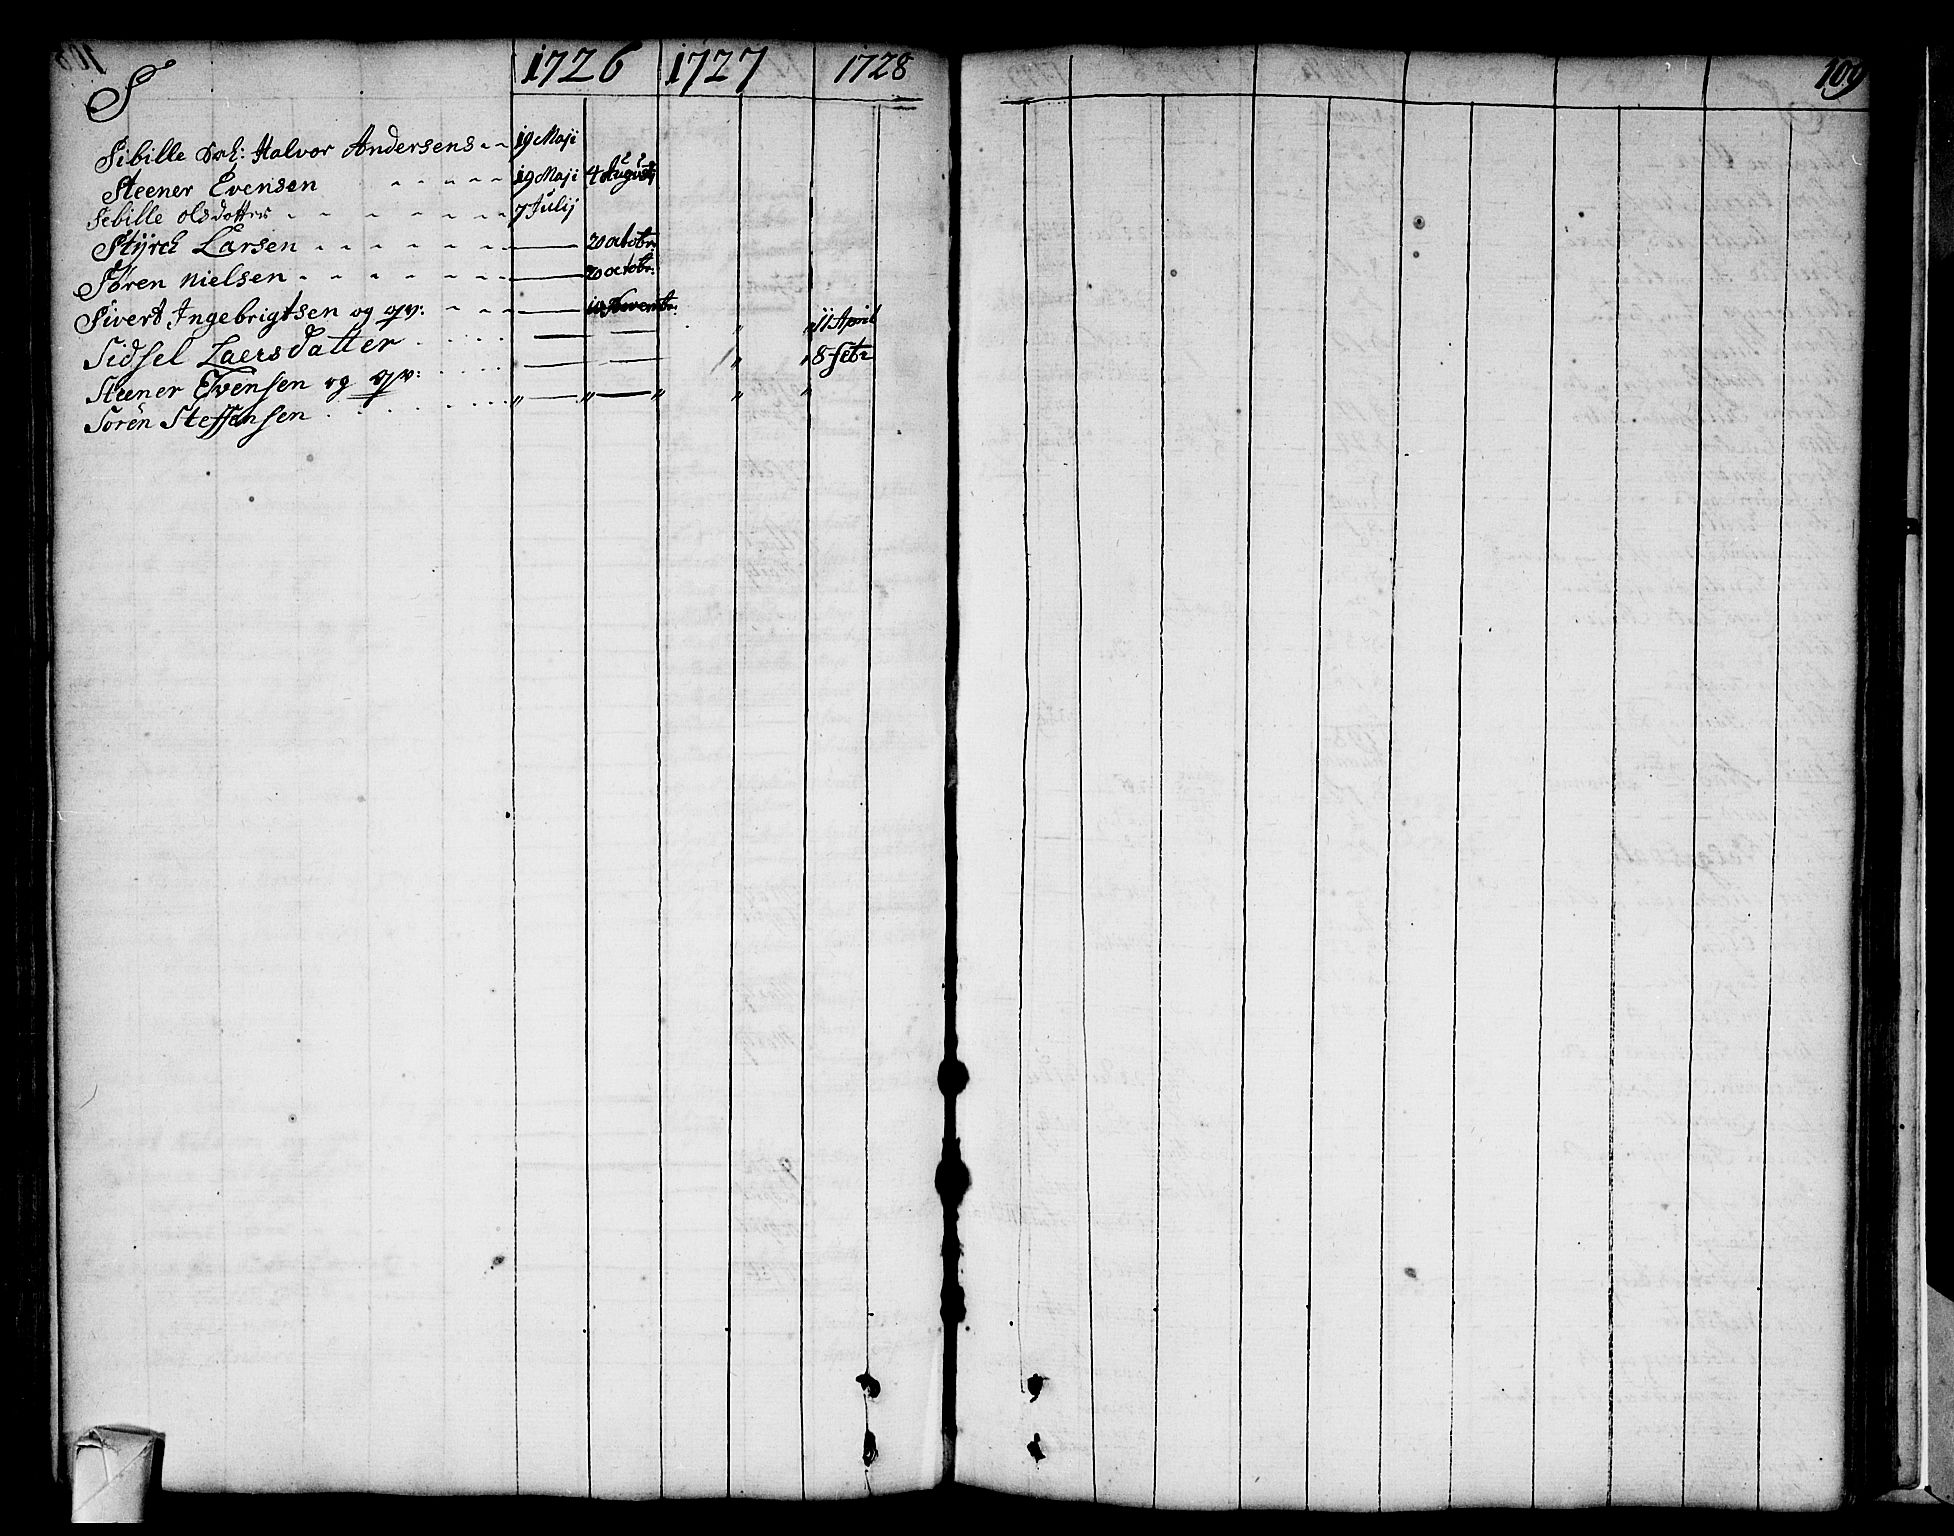 S 1726 1727 1728 109
Sibille Halvor Andersens 19 Maji
Steener Evensen 19 Maji 4 Augusti
Sebille Olsdotter 7 Julij
Styrck Larsen 20 octobr:
Søren Nielsen 20 octobr:
Sivert Ingebrigtsen og 10 Novembr:
Sidsel Laersdatter " " 11 April
Steener Evensen og " " 8 Sebr
Sören Steffensen " " " " "